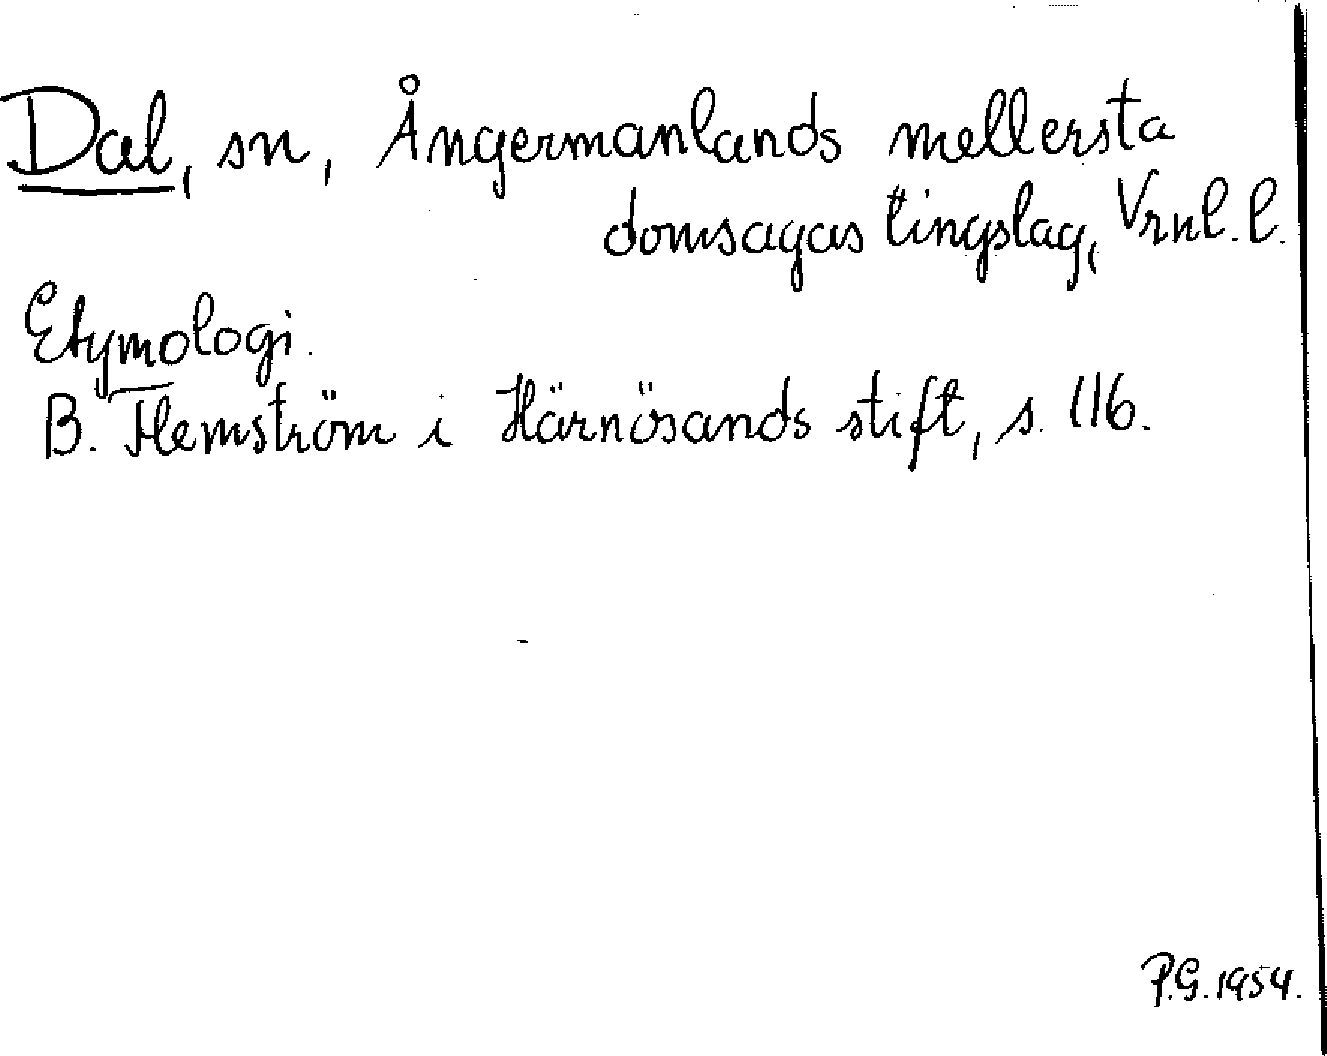 Dal, sn, Ångermanlands mellersta
domsagas tingslag, Vrnl. l.
Etymologi.
B. Flemström i Härnösands stift, s. 116.
P.G. 1954.